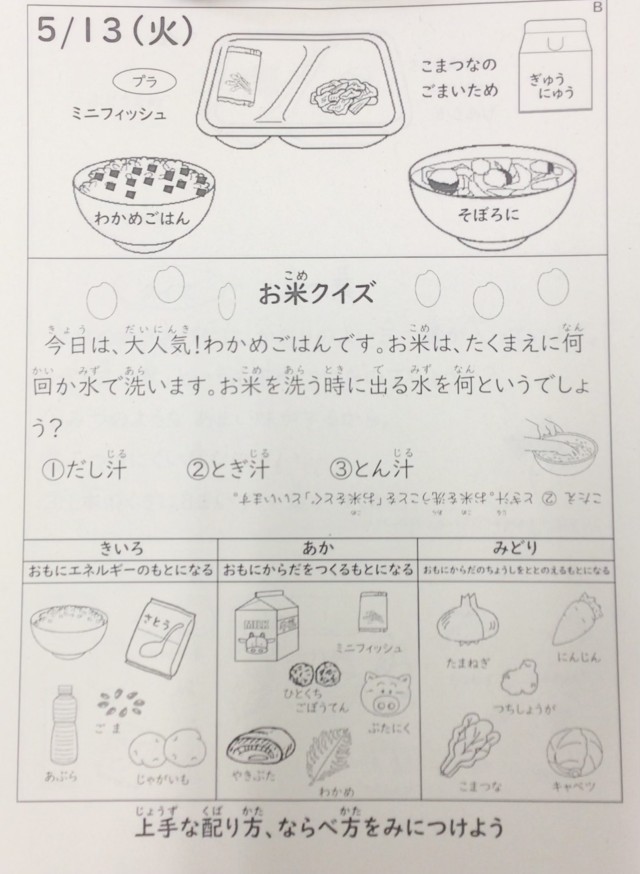 B
5/13(火)
プラ
ミニフィッシュ
こまつなの
ごまいため
ぎゅう
にゅう
わかめごはん
そぼろに
お米クイズ
今日は、大人気!わかめごはんです。お米は、たくまえに何
回か水で洗います。お米を洗う時に出る水を何というでしょ
う?
①だし汁 ②とぎ汁 ③とん汁
こたえ ② とぎ汁。お米を洗うことを「お米をとぐ」といいます。
きいろ
おもにエネルギーのもとになる
さとう
ごま
あぶら
じゃがいも
あか
おもにからだをつくるもとになる
MILK
ミニフィッシュ
ひとくち
ごぼうてん
ぶたにく
やきぶた
わかめ
みどり
おもにからだのちょうしをととのえるもとになる
たまねぎ
にんじん
つちしょうが
こまつな
キャベツ
上手な配り方、ならべ方をみにつけよう